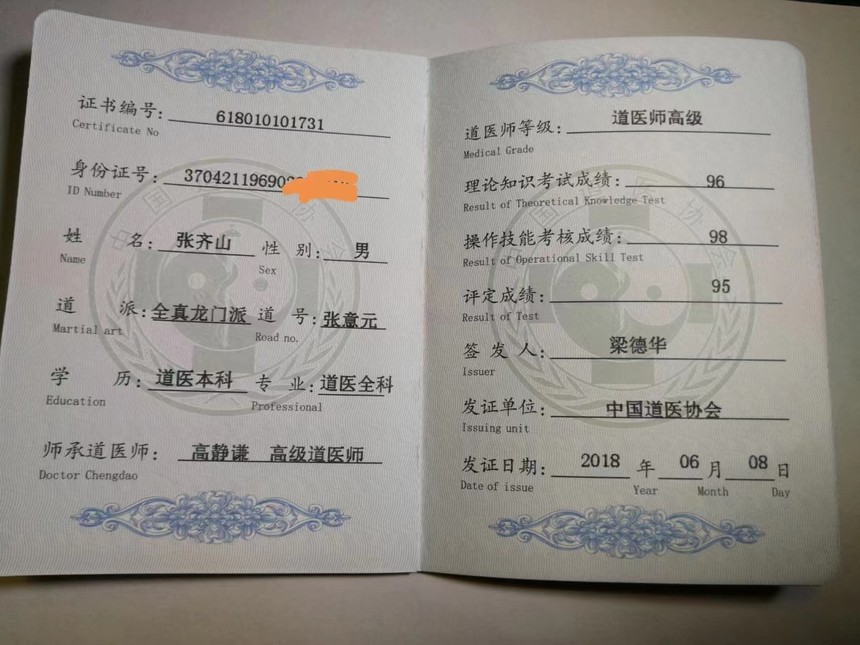 证书编号: 618010101731
Certificate No
身份证号: 37042119690
ID Number
姓 名: 张齐山 性 别: 男
Name Sex
道 派: 全真龙门派 道 号: 张意元
Martial art Road no.
学 历: 道医本科 专 业: 道医全科
Education Professional
师承道医师: 高静谦 高级道医师
Doctor Chengdao
道医师等级: 道医师高级
Medical Grade
理论知识考试成绩: 96
Result of Theoretical Knowledge Test
操作技能考核成绩: 98
Result of Operational Skill Test
评定成绩: 95
Result of Test
签 发 人: 梁德华
Issuer
发证单位: 中国道医协会
Issuing unit
发证日期: 2018 年 06 月 08 日
Date of issue Year Month Day